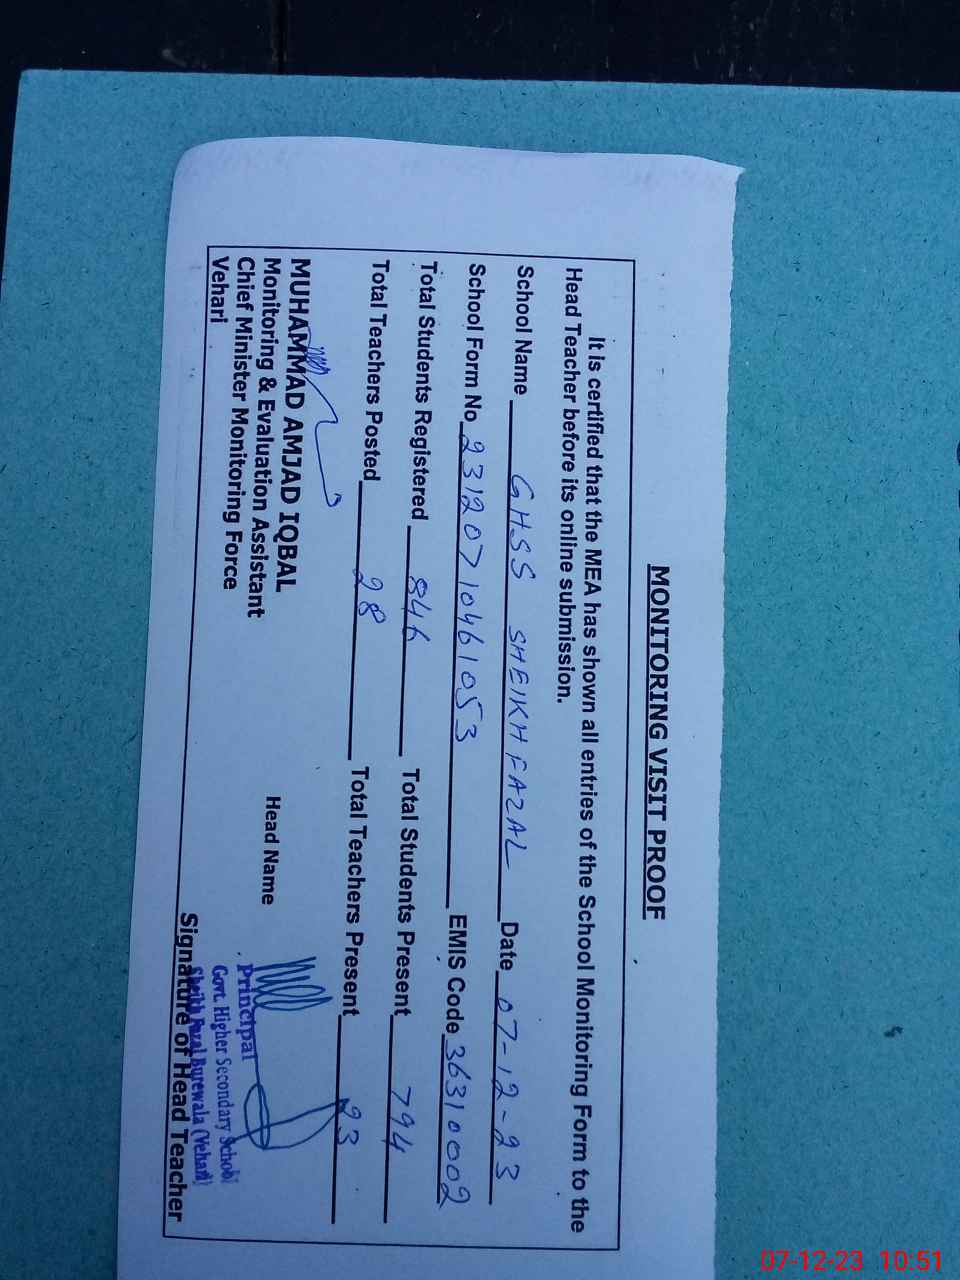 MONITORING VISIT PROOF
It is certified that the MEA has shown all entries of the School Monitoring Form to the
Head Teacher before its online submission.
School Name GHSS SHEIKH FAZAL Date 07-12-23
School Form No 23120710461053 EMIS Code 36310002
Total Students Registered 846 Total Students Present 794
Total Teachers Posted 28 Total Teachers Present 23
MUHAMMAD AMJAD IQBAL
Monitoring & Evaluation Assistant
Chief Minister Monitoring Force
Vehari
Head Name
Principal
Govt. Higher Secondary School
Sheikh Fazal Burewala (Vehari)
Signature of Head Teacher
07-12-23 10:51